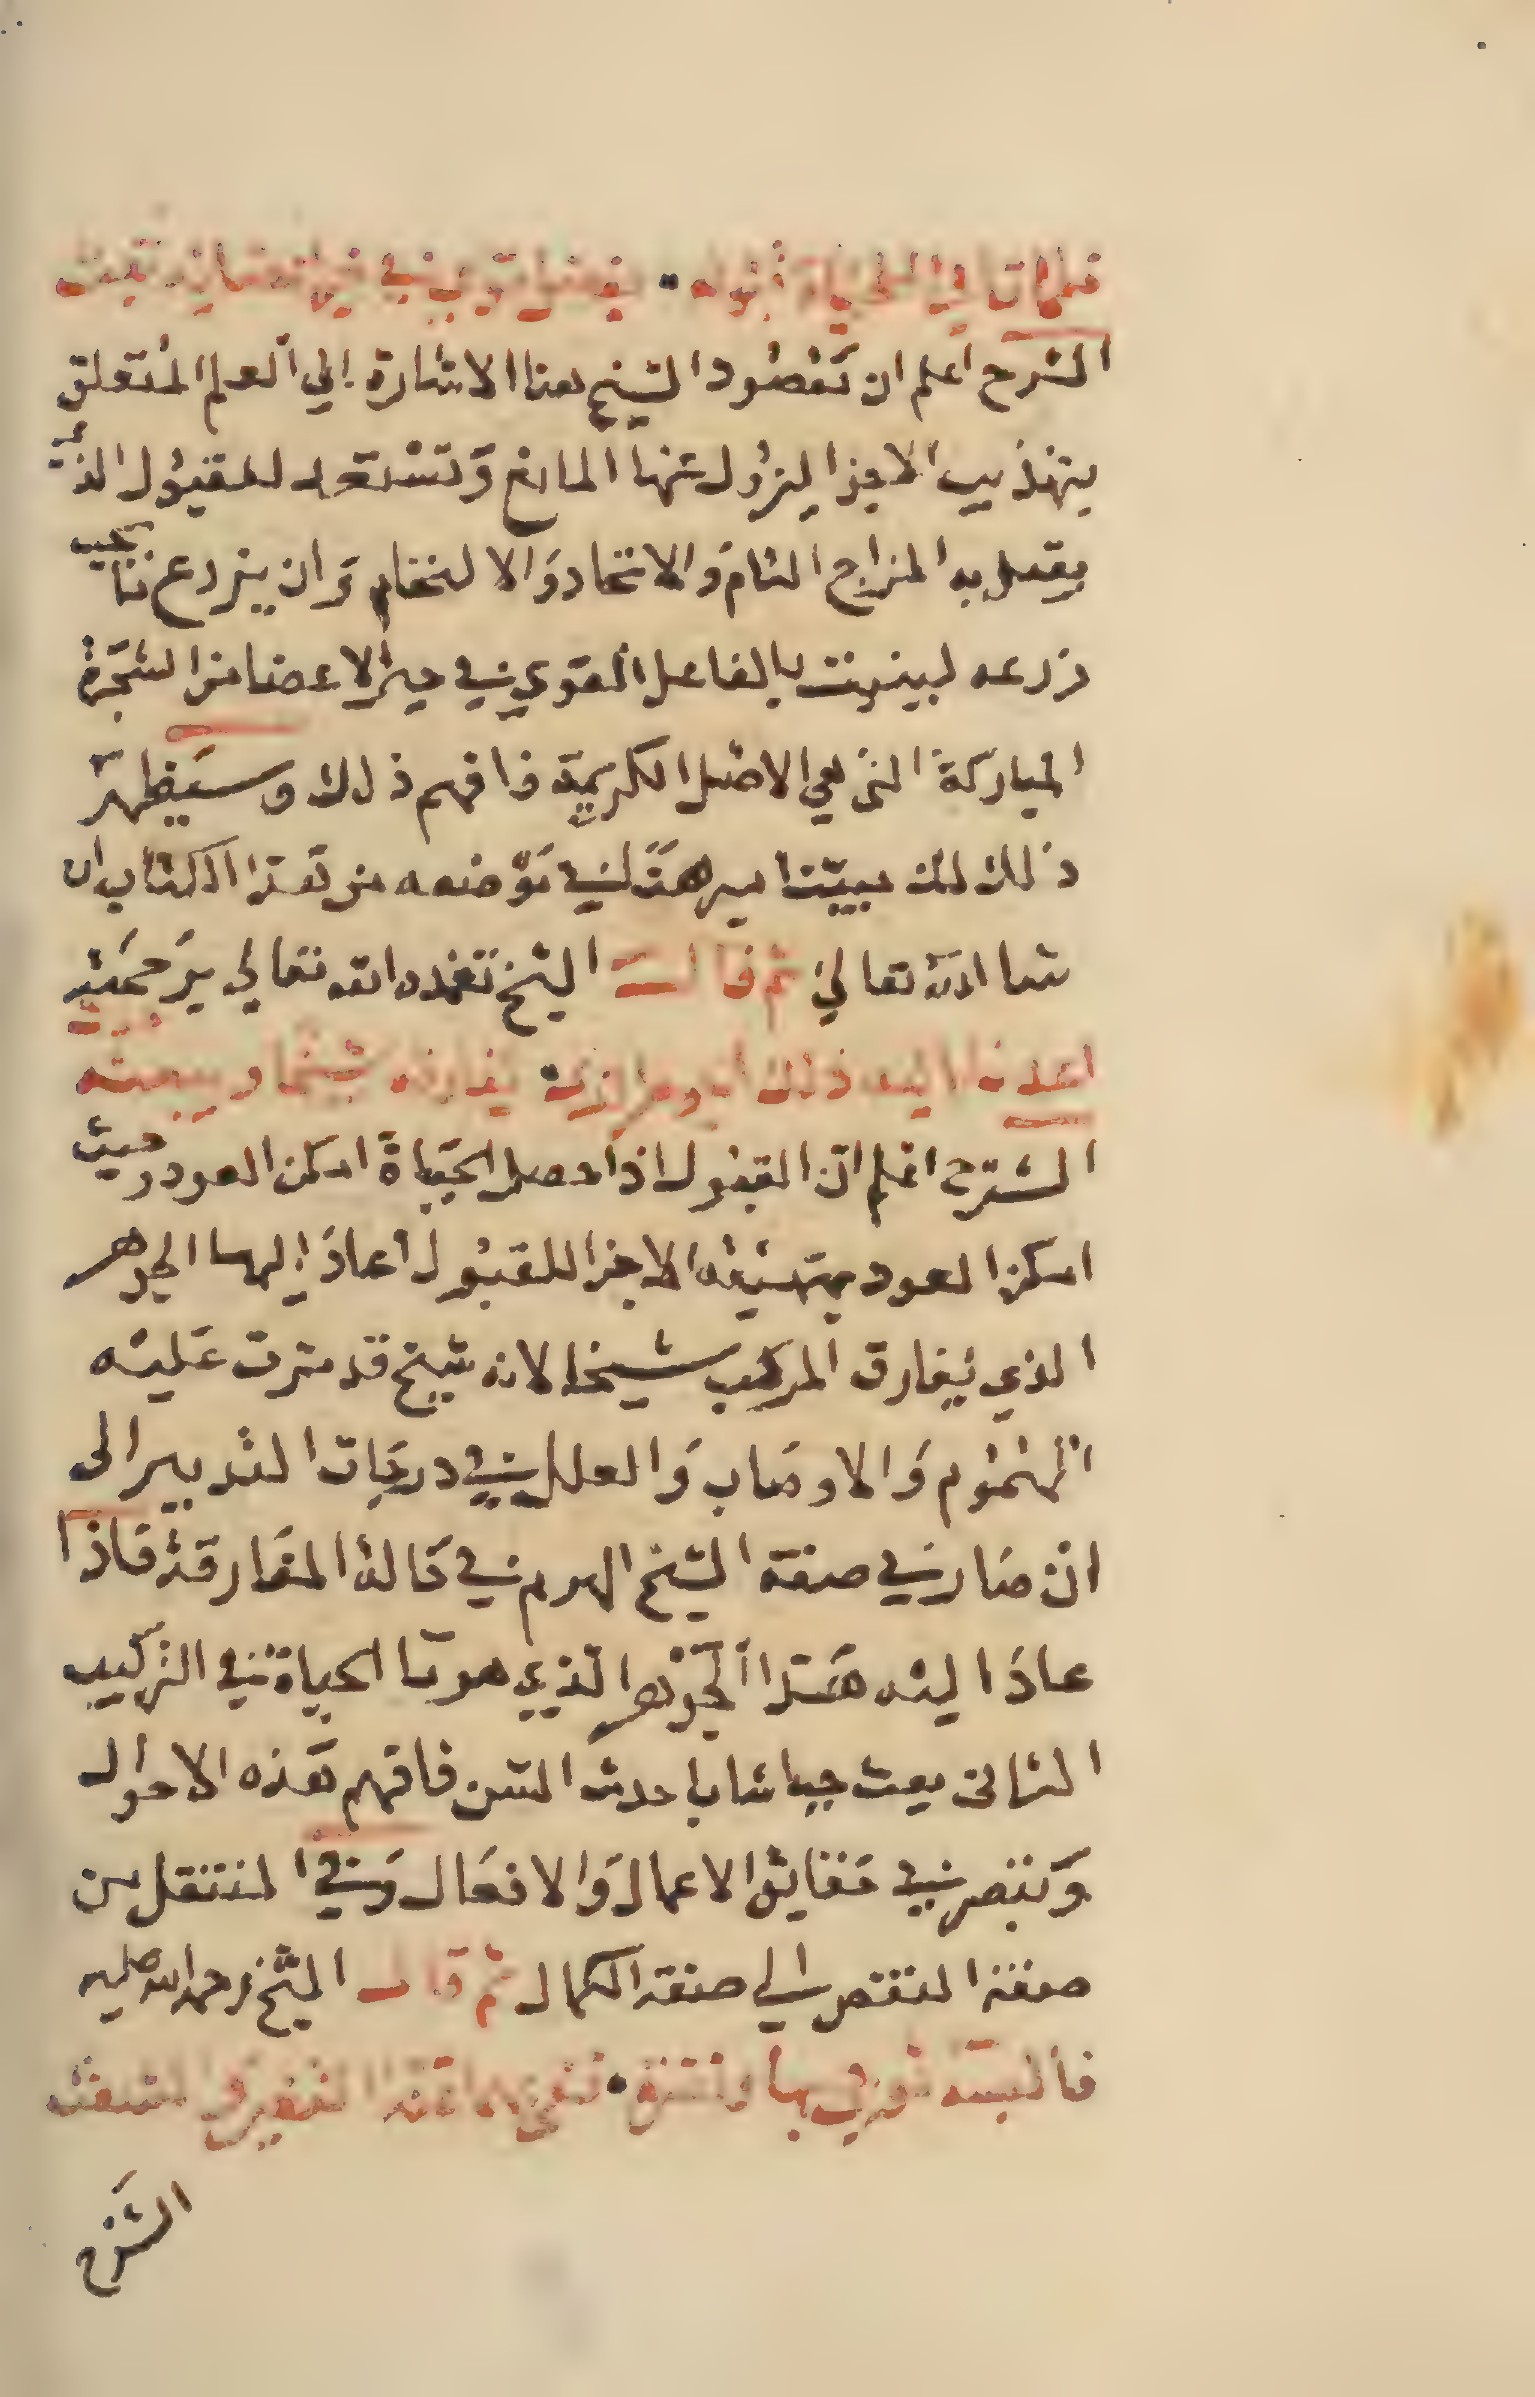 فلما تم في الحياة قبوله
الشرح اعلم ان مقصود الشيخ هنا الاشارة الي العلم المتعلق
بتهذيب الاجزا ليزول عنها المانع وتستعد للقبول الذي
يقبل به المزاج التام والاتحاد والالتحام وان يزرع ما يجب
زرعه لينبت بالفاعل القوي في حيز الاعضا من الشجرة
المباركة التي هي الاصل الكريمة فافهم ذلك وسيظهر
ذلك لك مبينا مبرهنا في موضعه من هذا الكتاب ان
شا الله تعالي ثم قال الشيخ تغمده الله تعالي برحمته
اعدنا اليه ذلك الجوهر الذي يفارقه شيخا
الشرح اعلم ان القبول اذا حصل الحياة امكن العود وحيث
امكن العود بتهيئة الاجزا للقبول اعاد اليها الجوهر
الذي يفارق المركب شيخا لانه شيخ قد مرت عليه
الهموم والاوصاب والعلل في درجات التدبير الى
ان صار في صفة الشيخ الهرم في حالة المفارقة فاذا
عاد اليه هذا الجوهر الذي هو ما الحياة في التركيب
الثاني بعث حيا شابا حدث السن فافهم هذه الاحوال
وتبصر في حقايق الاعمال والافعال وفي المنتقل من
صفة النقص الي صفة الكمال ثم قال الشيخ رحمة الله عليه
فالبسه ثوبي
الشرح